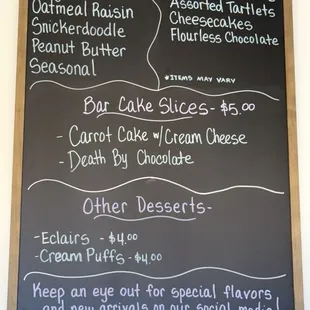 Oatmeal Raisin
Snickerdoodle
Peanut Butter
Seasonal
Assorted Tartlets
Cheesecakes
Flourless Chocolate
*ITEMS MAY VARY
Bar Cake Slices- $5.00
- Carrot Cake w/Cream Cheese
- Death By Chocolate
Other Desserts-
-Eclairs - $4.00
-Cream Puffs -$4.00
Keep an eye out for special flavors
and new arrivals on our social media!